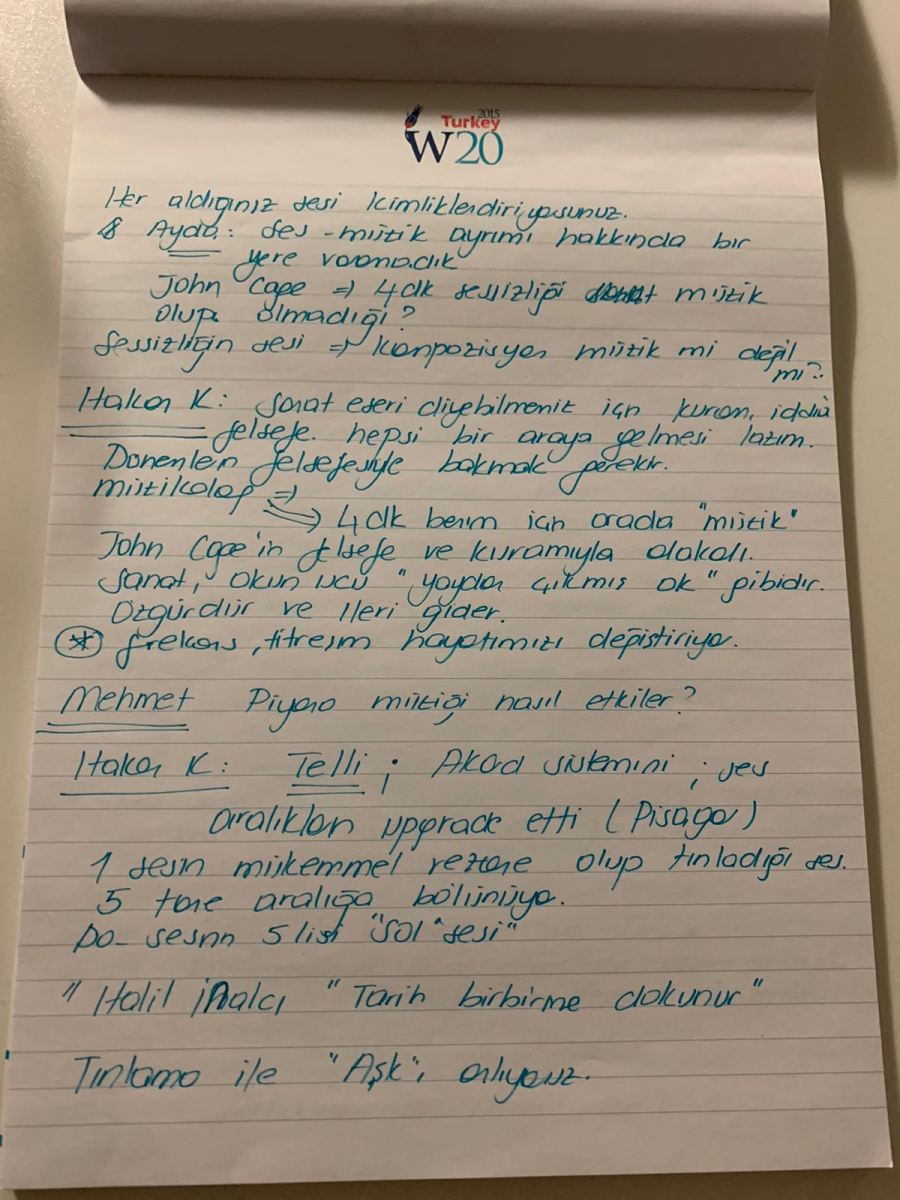 2015
Turkey
W20
Her aldığınız sesi kimliklendiriyosunuz.
Ayda: ses - müzik ayrımı hakkında bir
yere varamadık
John Cage => 4dk sessizliği müzik
olup olmadığı?
Sessizliğin sesi => kompozisyon müzik mi değil
mi?
Hakan K: Sanat eseri diyebilmemiz için kuram, iddia
felsefe. hepsi bir araya gelmesi lazım.
Dönemlerin felsefesiyle bakmak gerekir.
müzikolog =>
=> 4dk benim için orada "müzik"
John Cage'in felsefe ve kuramıyla alakalı.
Sanat, okun ucu "yaydan çıkmış ok" gibidir.
Özgürdür ve ileri gider.
* frekans, titreşim hayatımızı değiştiriyo.
Mehmet Piyano müziği nasıl etkiler?
Hakan K: Telli ; Akord sistemini ; ses
aralıkları upgrade etti (Pisagor)
1 sesin mükemmel rezone olup tınladığı ses.
5 tane aralığa bölünüyo.
Do- sesinin 5lisi "Sol" sesi"
" Halil İnalcı " Tarih birbirine dokunur"
Tınlama ile "Aşk"ı anlıyoruz.